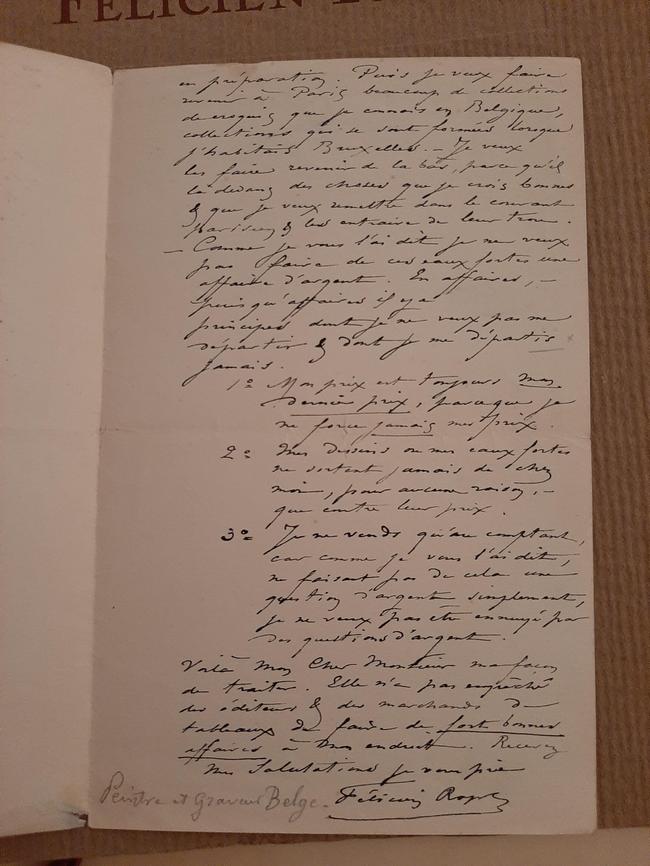 FELICIEN
en préparation. Puis je veux faire
revenir à Paris beaucoup de collections
de croquis que je connais en Belgique,
collections qui se sont formées lorsque
j'habitais Bruxelles. – Je veux
les faire revenir de là bas, parce qu'il y
a là dedans des choses que je crois bonnes
& que je veux remettre dans le courant
parisien & les extraire de leur trou.
– Comme je vous l'ai dit je ne veux
pas faire de ces eaux fortes une
affaire d'argent. En affaires, –
puisqu'affaires il y a
principes dont je ne veux pas me
départir & dont je me départis
jamais.
1º Mon prix est toujours mon
dernier prix, parce que je
ne force jamais mes prix.
2º Mes dessins ou mes eaux fortes
ne sortent jamais de chez
moi, pour aucune raison, –
que contre leur prix.
3º Je ne vends qu'au comptant,
car comme je vous l'ai dit,
ne faisant pas de cela une
question d'argent simplement,
je ne veux pas être ennuyé par
des questions d'argent.
Voilà Mon Cher Monsieur ma façon
de traiter. Elle n'a pas empêché
des éditeurs & des marchands de
tableaux de faire de fort bonnes
affaires à mon endroit. Recevez
mes Salutations je vous prie
Félicien Rops
Peintre et Graveur Belge.